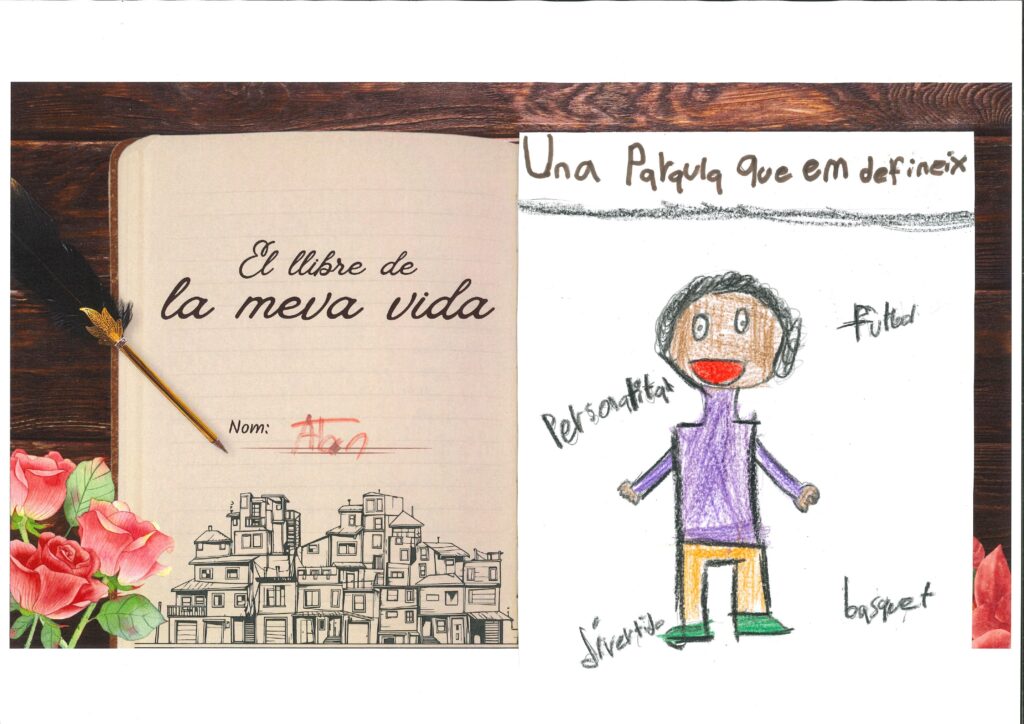 El llibre de
la meva vida
Nom:
Una Paraula que em defineix
futbol
Personalitat
basquet
divertido